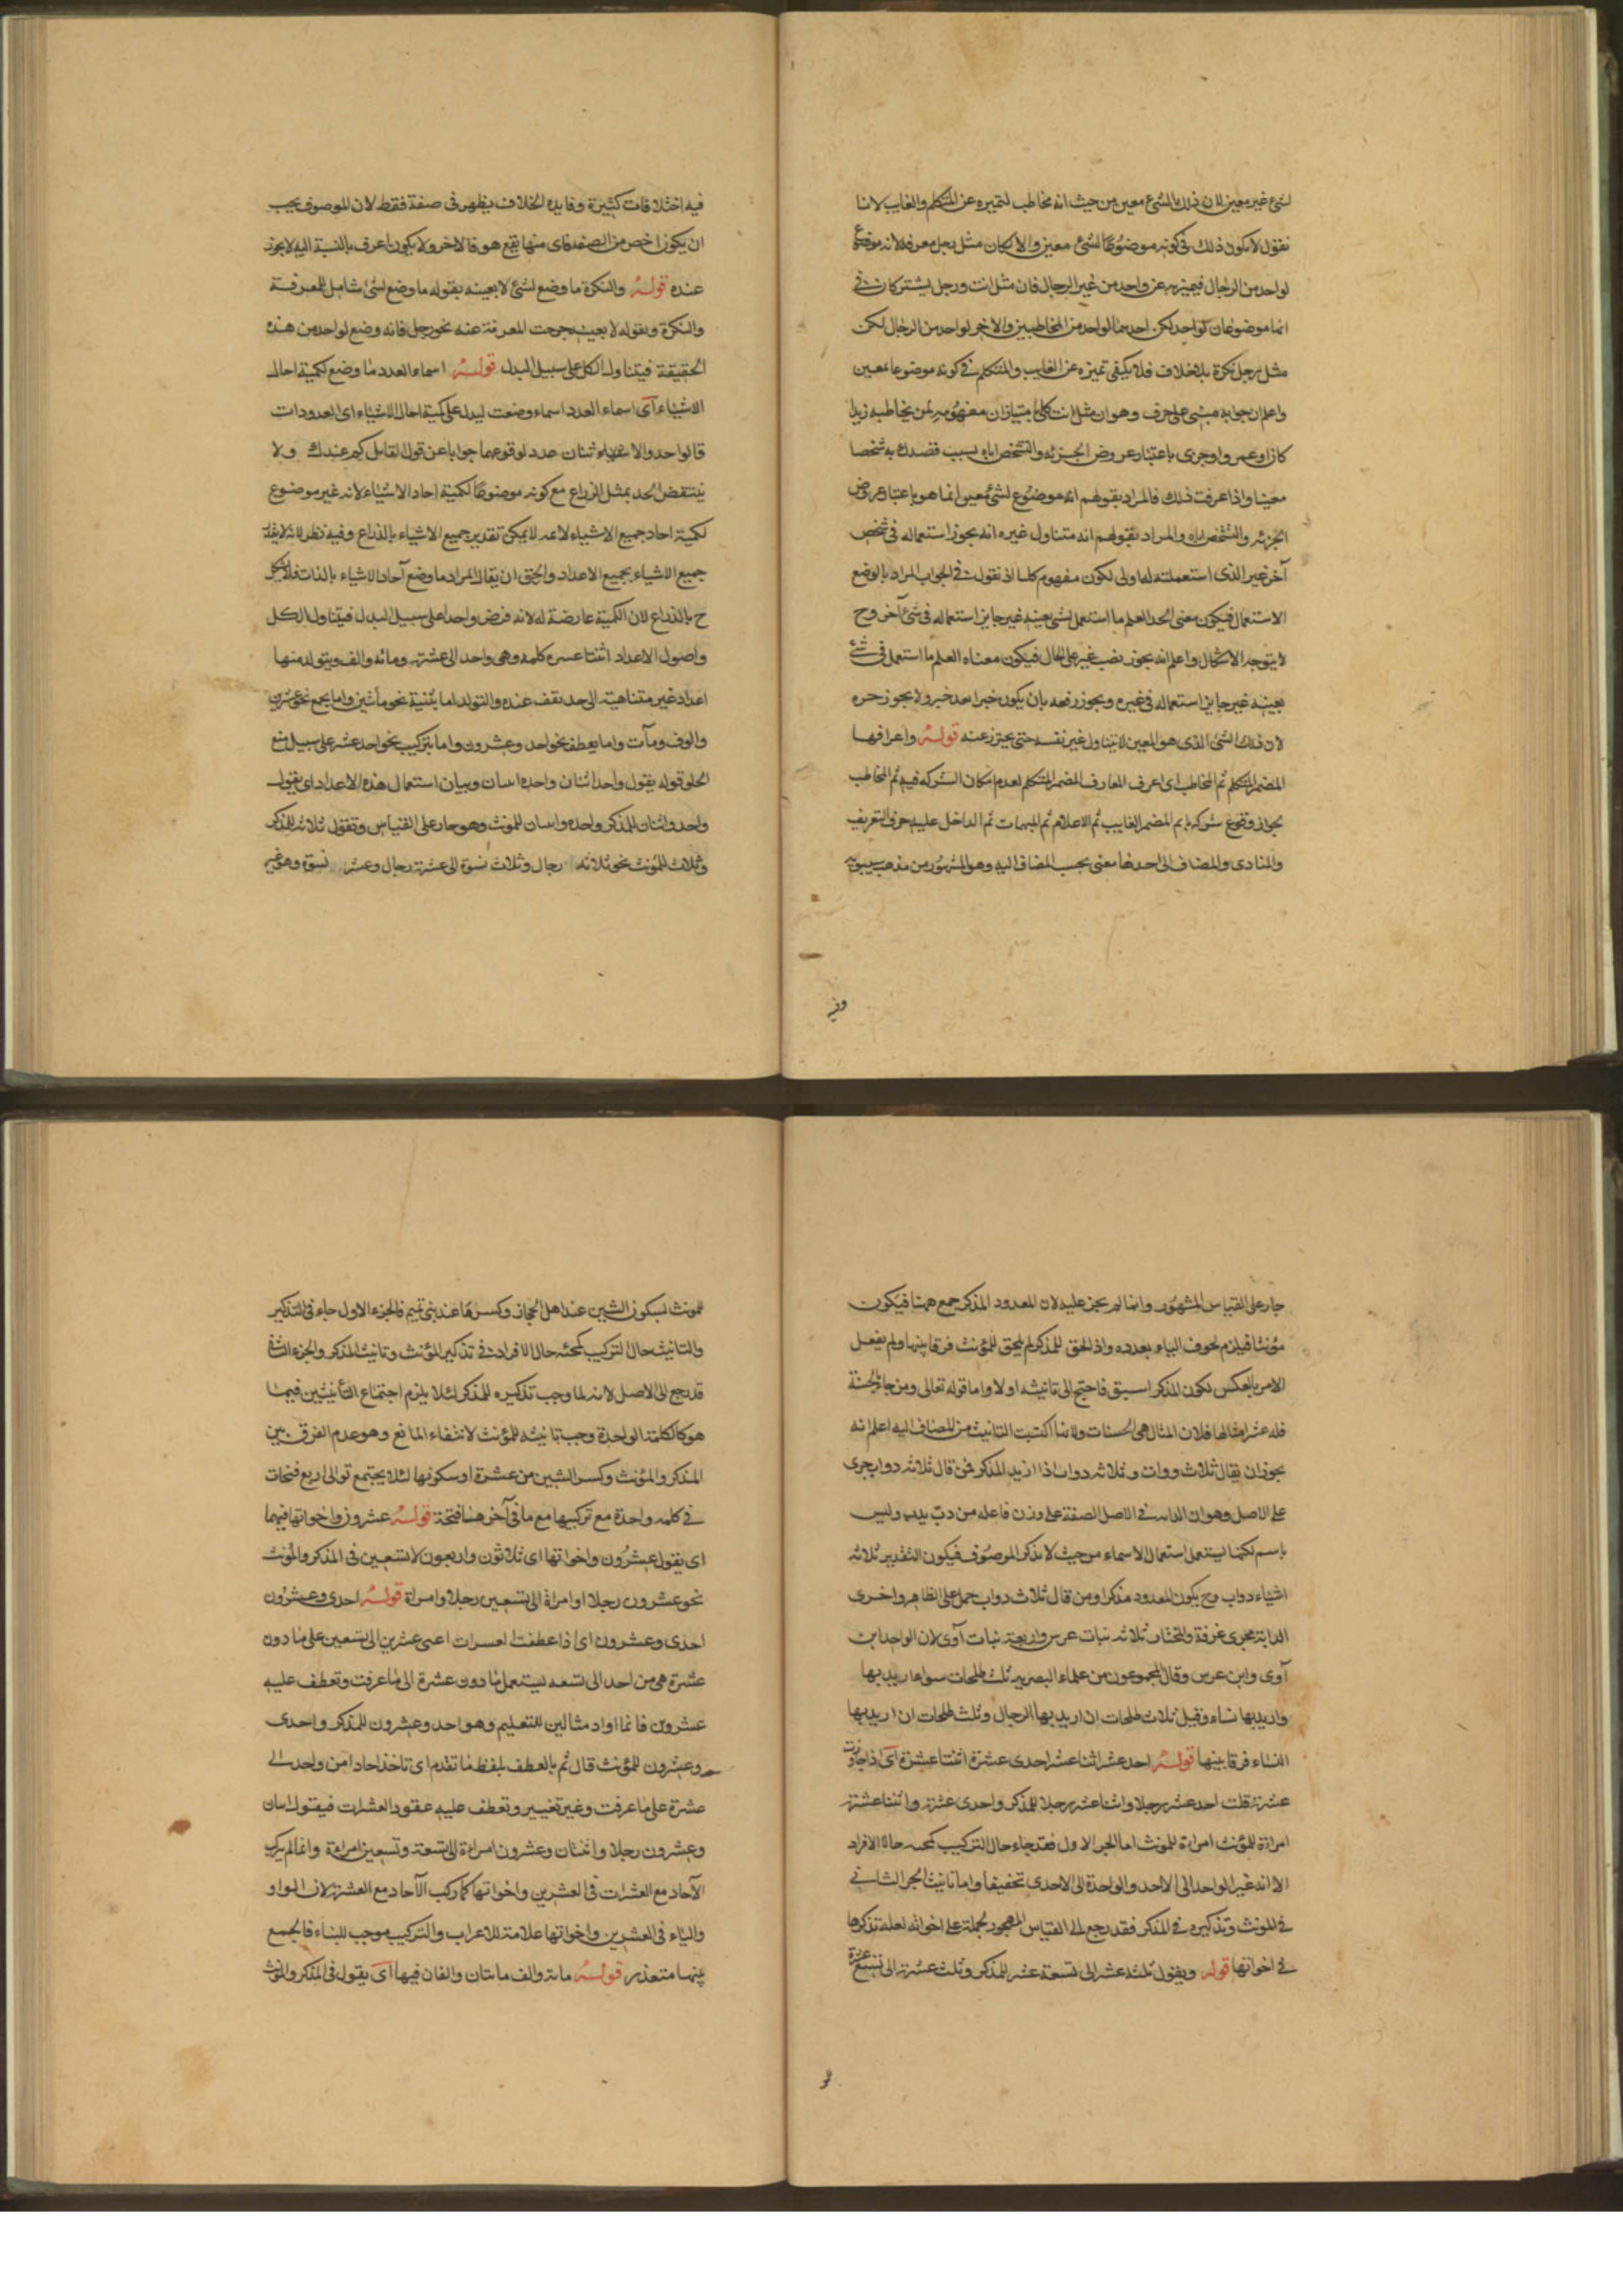 لشئ غير معين لان ذلك الشئ معين من حيث انه مخاطب لتميزه عن المتكلم والغايب لانا
نقول لا يكون ذلك فى كونه موضوعا لشئ معين والا لكان مثل رجل معرفة لانه موضوع
لواحد من الرجال فيميزه عن واحد من غير الرجال فان مثل انت ورجل يشتركان فى
انهما موضوعان لواحد لكن احدهما لواحد من المخاطبين والاخر لواحد من الرجال لكن
مثل رجل نكرة بلا خلاف فلا يكفى تميزه عن الغايب والمتكلم فى كونه موضوعا لمعين
واعلم ان جوابه مبنى على حرف وهو ان مثل انت كلى مفهومه لمن يخاطبه زيدا
كان او عمروا وجزى باعتبار عروض الجزئية والتشخص اياه بسبب قصدك به شخصا
معينا واذا عرفت ذلك فالمراد بقولهم انه موضوع لشئ معين انما هو باعتبار عروض
الجزئية والتشخص اياه والمراد بقولهم انه متناول غيره انه يجوز استعماله فى شخص
آخر غير الذى استعملته له اولى لكون مفهومه كليا اذ نقول فى الجواب المراد بالوضع
الاستعمال فيكون معنى الحد العلم ما استعمل لشئ بعينه غير جايز استعماله فى شئ آخر وح
لا يتوجه الاشكال واعلم انه يجوز نصب غير على الحال فيكون معناه العلم ما استعمل فى شئ
بعينه غير جايز استعماله فى غيره ويجوز رفعه بان يكون خبرا بعد خبر ولا يجوز جره
لان ذلك الشئ الذى هو المعين لا يتناول غير نفسه حتى يحترز عنه قوله واعرافها
المضمر المتكلم ثم المخاطب اى اعرف المعارف المضمر المتكلم لعدم امكان الشركه فيه ثم المخاطب
لجواز وقوع شركه ما ثم المضمر الغايب ثم الاعلام ثم المبهمات ثم الداخل عليه حرف التعريف
والمنادى والمضاف الى احدها معنى بحسب المضاف اليه وهو المشهور من مذهب سيبويه
وفيه
فيه اختلافات كثيرة وفايدة الخلاف يظهر فى صفة فقط لان الموصوف يجب
ان يكون اخص من الصفة فاى منها يقع هو فالاخر ولا يكون اعرف بالنسبة اليه لا يجوز
عنده قوله والنكرة ما وضع لشئ لا بعينه بقوله ما وضع لشئ شامل للمعرفة
والنكرة وبقوله لا بعينه خرجت المعرفة عنه نحو رجل فانه وضع لواحد من هذه
الحقيقة فيتناول الكل على سبيل البدل قوله اسماء العدد ما وضع لكمية احاد
الاشياء اى اسماء العدد اسماء وضعت ليدل على كمية احاد الاشياء اى المعدودات
قالواحد والاثنان عدد لوقوعهما جوابا عن قول القايل كم عندك ولا
ينتقض الحد بمثل الذراع مع كونه موضوعا لكمية احاد الاشياء لانه غير موضوع
لكمية احاد جميع الاشياء لانه لا يمكن تقدير جميع الاشياء بالذراع وفيه نظر لانه لا يقدر
جميع الاشياء بجميع الاعداد والحق ان يقال المراد ما وضع آحاد الاشياء بالذات فلا يشكل
ح بالذراع لان الكمية عارضة له لانه فرض واحدا على سبيل البدل فيتناول الكل
واصول الاعداد اثنتا عشرة كلمه وهى واحد الى عشرة ومائه والف ويتولد منها
اعداد غير متناهية الى حد يقف عنده والتولد اما بتثنية نحو مأتين واما بجمع نحو عشرين
والوف ومآت واما بعطف نحو احد وعشرون واما بتركيب نحو احد عشر على سبيل منع
الخلو قوله يقول واحد اثنان واحدة اثنتان وبيان استعمال هذه الاعداد اى يقول
واحد واثنان للمذكر واحدة واثنتان للمونث وهو جار على القياس وتقول ثلاثه للمذكر
وثلاث للمؤنث نحو ثلاثة رجال وثلاث نسوة الى عشرة رجال وعشر نسوة وهو غير
جار على القياس المشهور وانما لم يجز عليه لان المعدود المذكر جمع ههنا فيكون
مؤنثا فيلزم لحوف التاء بعدده واذ الحق للمذكر لم يحق للمؤنث فرقا بينها ولم يفعل
الامر بالعكس لكون المذكر اسبق فاحتيج الى تانيثه اولا واما قوله تعالى ومن جاء بالحسنة
فله عشر امثالها فلان المثال هى الحسنات ولانها اكتسبت التانيث من المضاف اليه اعلم انه
يجوز ان يقال ثلاث دواب وثلاثة دواب اذا اريد المذكر فمن قال ثلاثة دواب جرى
على الاصل وهو ان الدابه فى الاصل الصفة على وزن فاعله من دبّ يدب وليس
باسم لكنها يستعمل استعمال الاسماء من حيث لا يذكر الموصوف فيكون التقدير ثلاثه
اشياء دواب وح يكون المعدود مذكرا ومن قال ثلاث دواب حمل على الظاهر واجرى
الدابة مجرى غرفة والمختار ثلاثه بنات عرس واربعة بنات آوى لان الواحد ابن
آوى وابن عرس وقال المجموعون من علماء البصريه ثلث طلحات سواء اريد بها
واريد بها نساء وقيل ثلاث طلحات ان اريد بها الرجال وثلث طلحات ان اريد بها
النساء فرقا بينها قوله احد عشر اثنا عشر احدى عشرة اثنتا عشرة اى اذا جاوزت
عشرة قلت احد عشر رجلا واثنا عشر رجلا للمذكر واحدى عشرة واثنتا عشرة
امراة للمؤنث امراة للمونث اما الجزء الاول فقد جاء حال التركيب كمجيئه حالة الافراد
الا انه غير الواحد الى الاحد والواحدة الى الاحدى تخفيفا واما تانيث الجزء الثانى
فى المونث وتذكيره فى المذكر فقد رجع الى القياس المهجور لحملة على اخواته لعلة نذكرها
فى اخواتها قوله ويقول ثلثة عشر الى تسعة عشر للمذكر وثلث عشرة الى تسع عشرة
للمونث بسكون الشين عند اهل الحجاز وكسرها عند بنى تميم فالجزء الاول جاء فى التذكير
والتانيث حال التركيب كمجئه حال الافراد فى تذكير المؤنث وتانيث المذكر والجزء الثانى
قد رجع الى الاصل لانه لما وجب تذكيره للمذكر لئلا يلزم اجتماع التأنيثين فيما
هو كالكلمة الواحدة وجب تانيثه للمؤنث لانتفاء المانع وهو عدم الفرق بين
المذكر والمؤنث وكسر الشين من عشرة او سكونها لئلا يجتمع توالى اربع فتحات
فى كلمه واحدة مع تركيبها مع ما فى آخرها فتحة قوله عشرون واخواتها فيهما
اى يقول عشرون واخواتها اى ثلاثون واربعون لا تسعين فى المذكر والمونث
نحو عشرون رجلا او امراة الى تسعين رجلا وامراة قوله احدى وعشرون
احدى وعشرون اى اذا عطفت العشرات اعنى عشرين الى تسعين على ما دون
عشرة هى من احد الى تسعه يستعمل ما دون عشرة الى ما عرفت وتعطف عليه
عشرون فانما اواد مثالين للتعليم وهو احد وعشرون للمذكر واحدى
وعشرون للمؤنث قال ثم بالعطف بلفظ ما تقدم اى تاخذ احادا من واحد الى
عشرة على ما عرفت وغير تغيير وتعطف عليه عقود العشرات فيقول اثنان
وعشرون رجلا واثنتان وعشرون امراة الى تسعة وتسعين امراءة وانما لم يركب
الآحاد مع العشرات فى العشرين واخواتها كما ركب الآحاد مع العشرة لان الواو
والياء فى العشرين واخواتها علامة للاعراب والتركيب موجب للبناء فالجمع
بينهما متعذر قوله مائة والف مائتان والفان فيها اى يقول فى المذكر والمونث